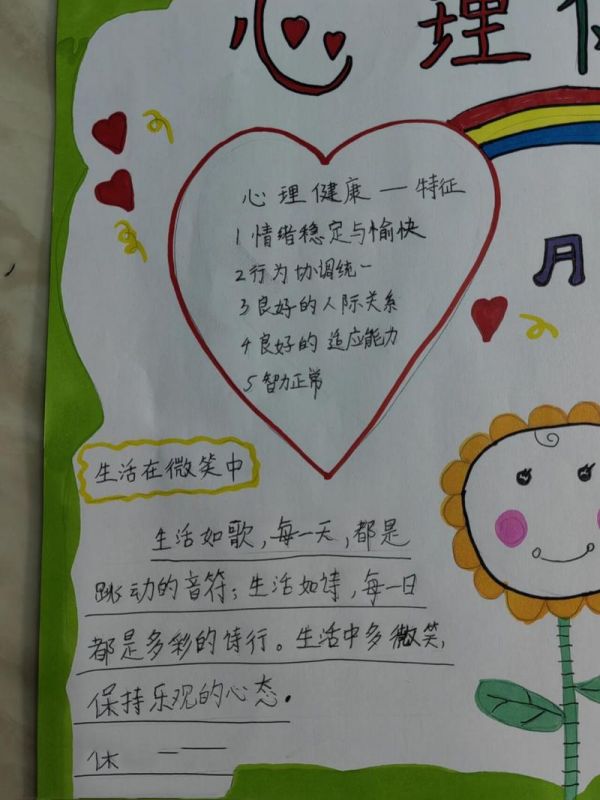 心理
心理健康一特征
1情绪稳定与愉快
2行为协调统一
3良好的人际关系
4良好的适应能力
5智力正常
月
生活在微笑中
生活如歌,每一天,都是
跳动的音符;生活如诗,每一日
都是多彩的诗行。生活中多微笑,
保持乐观的心态。